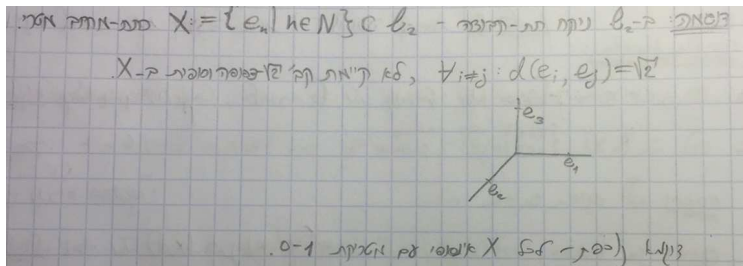 דוגמה: ב-ℓ₂ ניקח תת-קבוצה - X := {eₙ | n∈N} ⊂ ℓ₂ כתת-מרחב מטרי.
∀i≠j: d(eᵢ, eⱼ) = √2, לא קיימת קב' √2-צפופה וסופית ב-X.
e₃
e₁
e₂
דוגמא נוספת - לכל X אינסופי עם מטריקת 0-1.